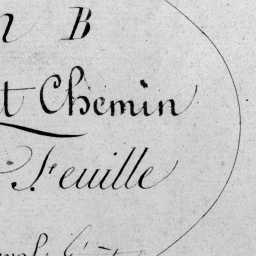 B
t Chemin
Feuille